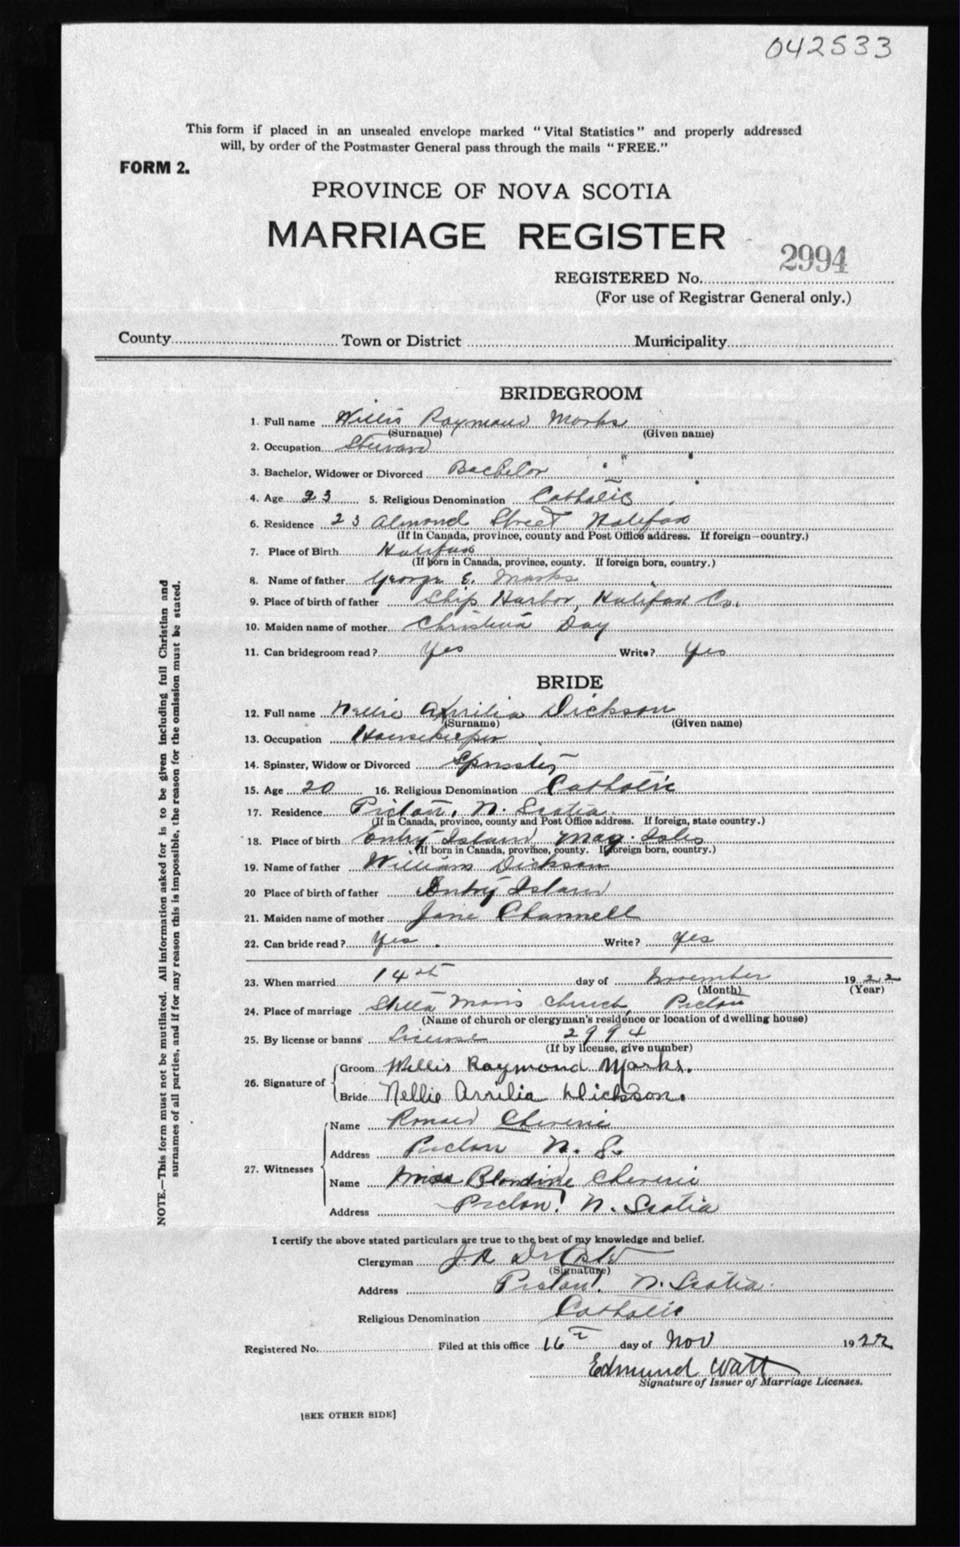 042533
This form if placed in an unsealed envelope marked "Vital Statistics" and properly addressed
will, by order of the Postmaster General pass through the mails "FREE."
FORM 2.
PROVINCE OF NOVA SCOTIA
MARRIAGE REGISTER
REGISTERED No. 2994
(For use of Registrar General only.)
County Town or District Municipality
BRIDEGROOM
1. Full name Willis Raymond Marks
(Surname) (Given name)
2. Occupation Steward
3. Bachelor, Widower or Divorced Bachelor
4. Age 23 5. Religious Denomination Catholic
6. Residence 23 Almond Street Halifax
(If in Canada, province, county and Post Office address. If foreign—country.)
7. Place of Birth Halifax
(If born in Canada, province, county. If foreign born, country.)
8. Name of father George E. Marks
9. Place of birth of father Ship Harbor, Halifax Co.
10. Maiden name of mother Christina Day
11. Can bridegroom read? Yes Write? Yes
BRIDE
12. Full name Nellie Dickson
(Surname) (Given name)
13. Occupation Housekeeper
14. Spinster, Widow or Divorced Spinster
15. Age 20 16. Religious Denomination Catholic
17. Residence Pictou, N. Scotia
(If in Canada, province, county and Post Office address. If foreign, state country.)
18. Place of birth Entry Island Mag. Isles
(If born in Canada, province, county. If foreign born, country.)
19. Name of father William Dickson
20 Place of birth of father Entry Island
21. Maiden name of mother Jane Channell
22. Can bride read? Yes Write? Yes
23. When married 14th day of November 1922
(Month) (Year)
24. Place of marriage Stella Maris Church, Pictou
(Name of church or clergyman's residence or location of dwelling house)
25. By license or banns License 2994
(If by license, give number)
26. Signature of Groom Willis Raymond Marks.
Bride Nellie Arrilia Dickson.
27. Witnesses
Name Ronald Cheverie
Address Pictou N. S.
Name Miss Blandine Cheverie
Address Pictou N. Scotia
I certify the above stated particulars are true to the best of my knowledge and belief.
Clergyman J. A.
(Signature)
Address Pictou N. Scotia.
Religious Denomination Catholic
Registered No. Filed at this office 16 day of Nov 1922
Edmund Watt
Signature of Issuer of Marriage Licenses.
[SEE OTHER SIDE]
NOTE.—This form must not be mutilated. All information asked for is to be given including full Christian and
surnames of all parties, and if for any reason this is impossible, the reason for the omission must be stated.